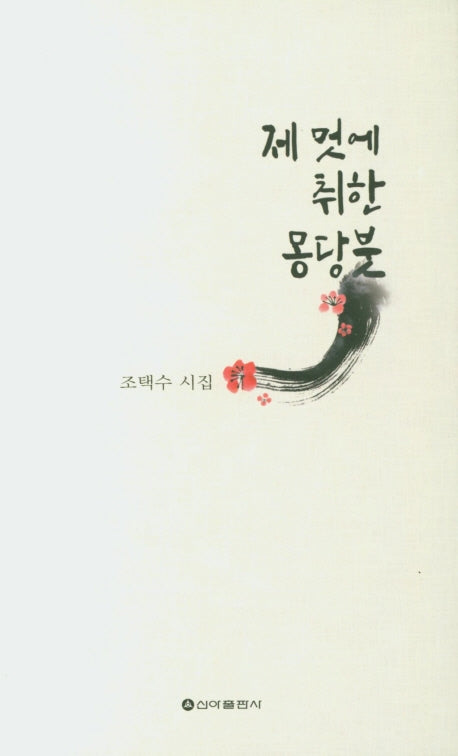 제 멋에
취한
몽당붓
조택수 시집
신아출판사